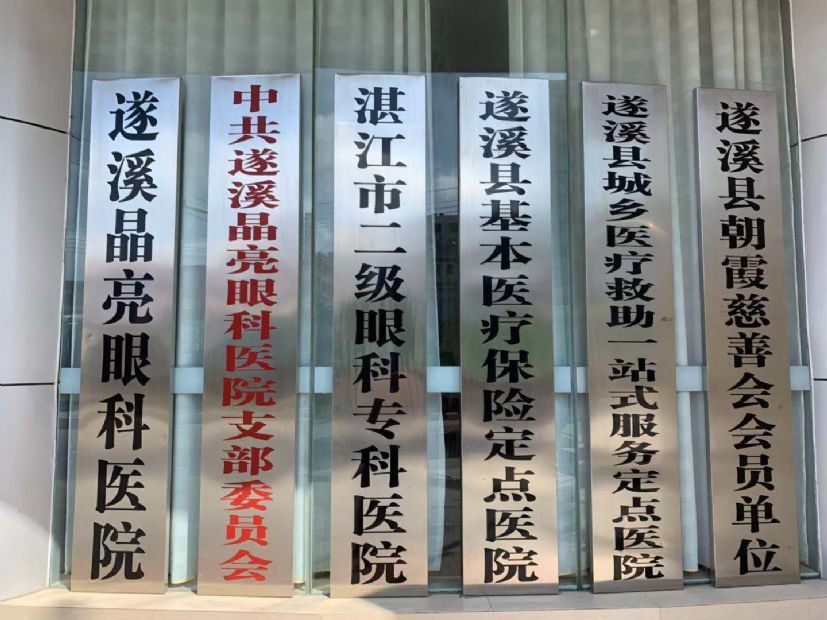 遂溪晶亮眼科医院
中共遂溪晶亮眼科医院支部委员会
湛江市二级眼科专科医院
遂溪县基本医疗保险定点医院
遂溪县城乡医疗救助一站式服务定点医院
遂溪县朝霞慈善会会员单位